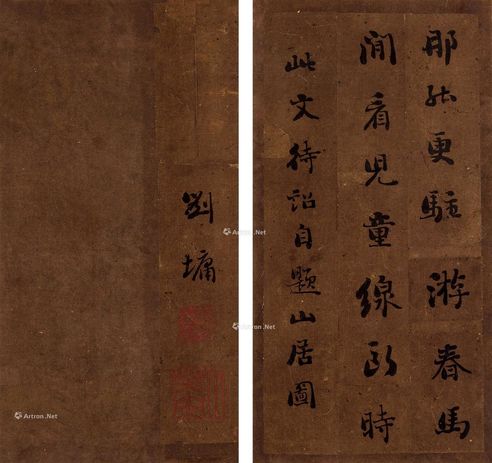 那能更駐游春馬
閒看兒童線斷時
此文待詔自題山居圖
劉墉
Artron.Net
Artron.Net
Artron.Net